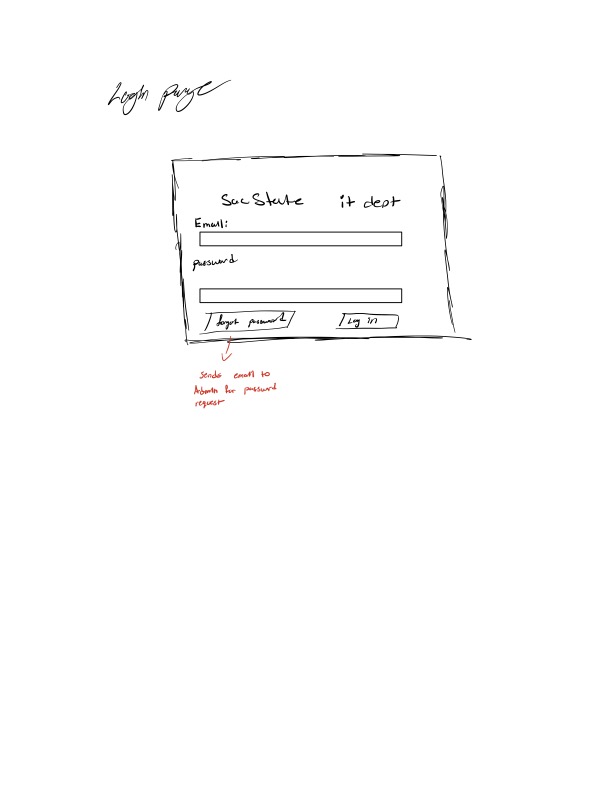 Login page
Sac State it dept
Email:
password
forgot password Log in
Sends email to
Admin for password
request